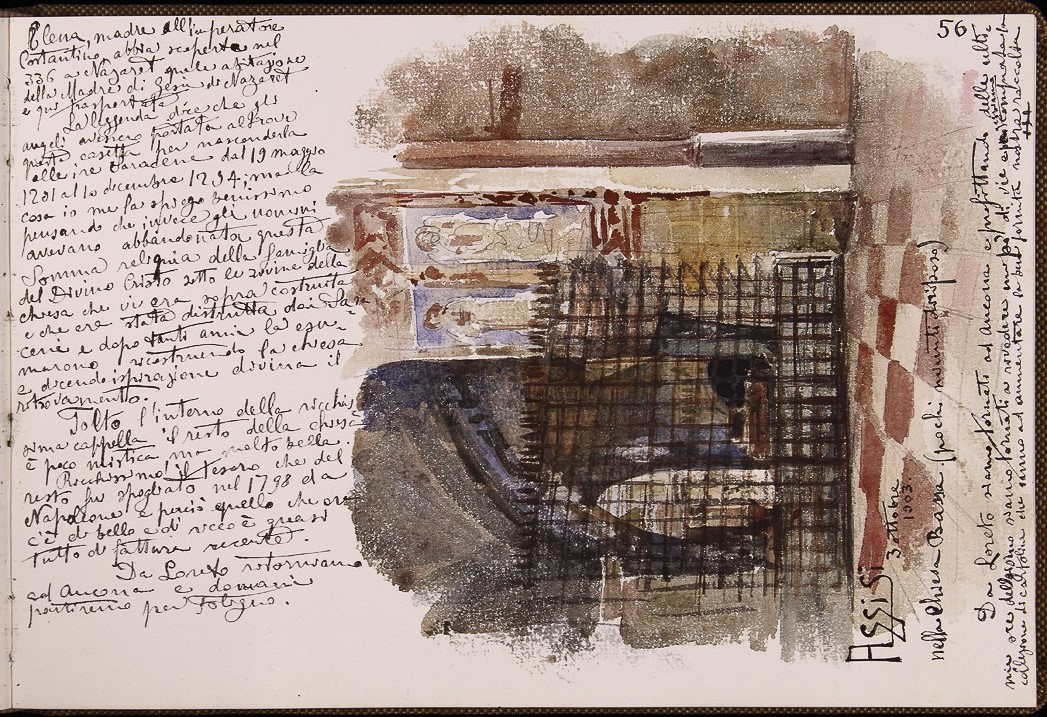 56
Elena, madre all'imperatore
Costantino, abbia scoperta nel
336 a Nazaret quale abitazione
della Madre di Gesù di Nazaret
e qui trasportata
La leggenda dice che gli
angeli avessero portata altrove
questa casetta per nasconderla
alle ire Saracene dal 19 maggio
1291 al 10 dicembre 1294; ma la
cosa io me la spiego benissimo
pensando che invece gli uomini
avevano abbandonata questa
Somma reliquia della famiglia
del Divino Cristo sotto le rovine della
chiesa che vi era sopra costruita
e che era stata distrutta dai Sara
ceni e dopo tanti anni la
ricostruendo la chiesa
e ispirazione divina il
ritrovamento.
Tolto l'interno della ricchis
sima cappella il resto della chiesa
è poco mistica ma molto bella.
Ricchissimo il tesoro che del
resto fu spogliato nel 1798 da
Napoleone e perciò quello che ora
c'è di bello e di ricco è quasi
tutto di fattura recente.
Da Loreto ritorniamo
ad Ancona e domani
partiremo per Foligno.
ASSISI
3 ottobre
1903.
nella Chiesa Bassa (pochi minuti di riposo)
Da Loreto siamo tornati ad Ancona e profittando delle ulti
me ore del giorno siamo tornati a rovedere un po' di vie e comprata
collezione di che vanno ad aumentare la ben fornita nostra raccolta